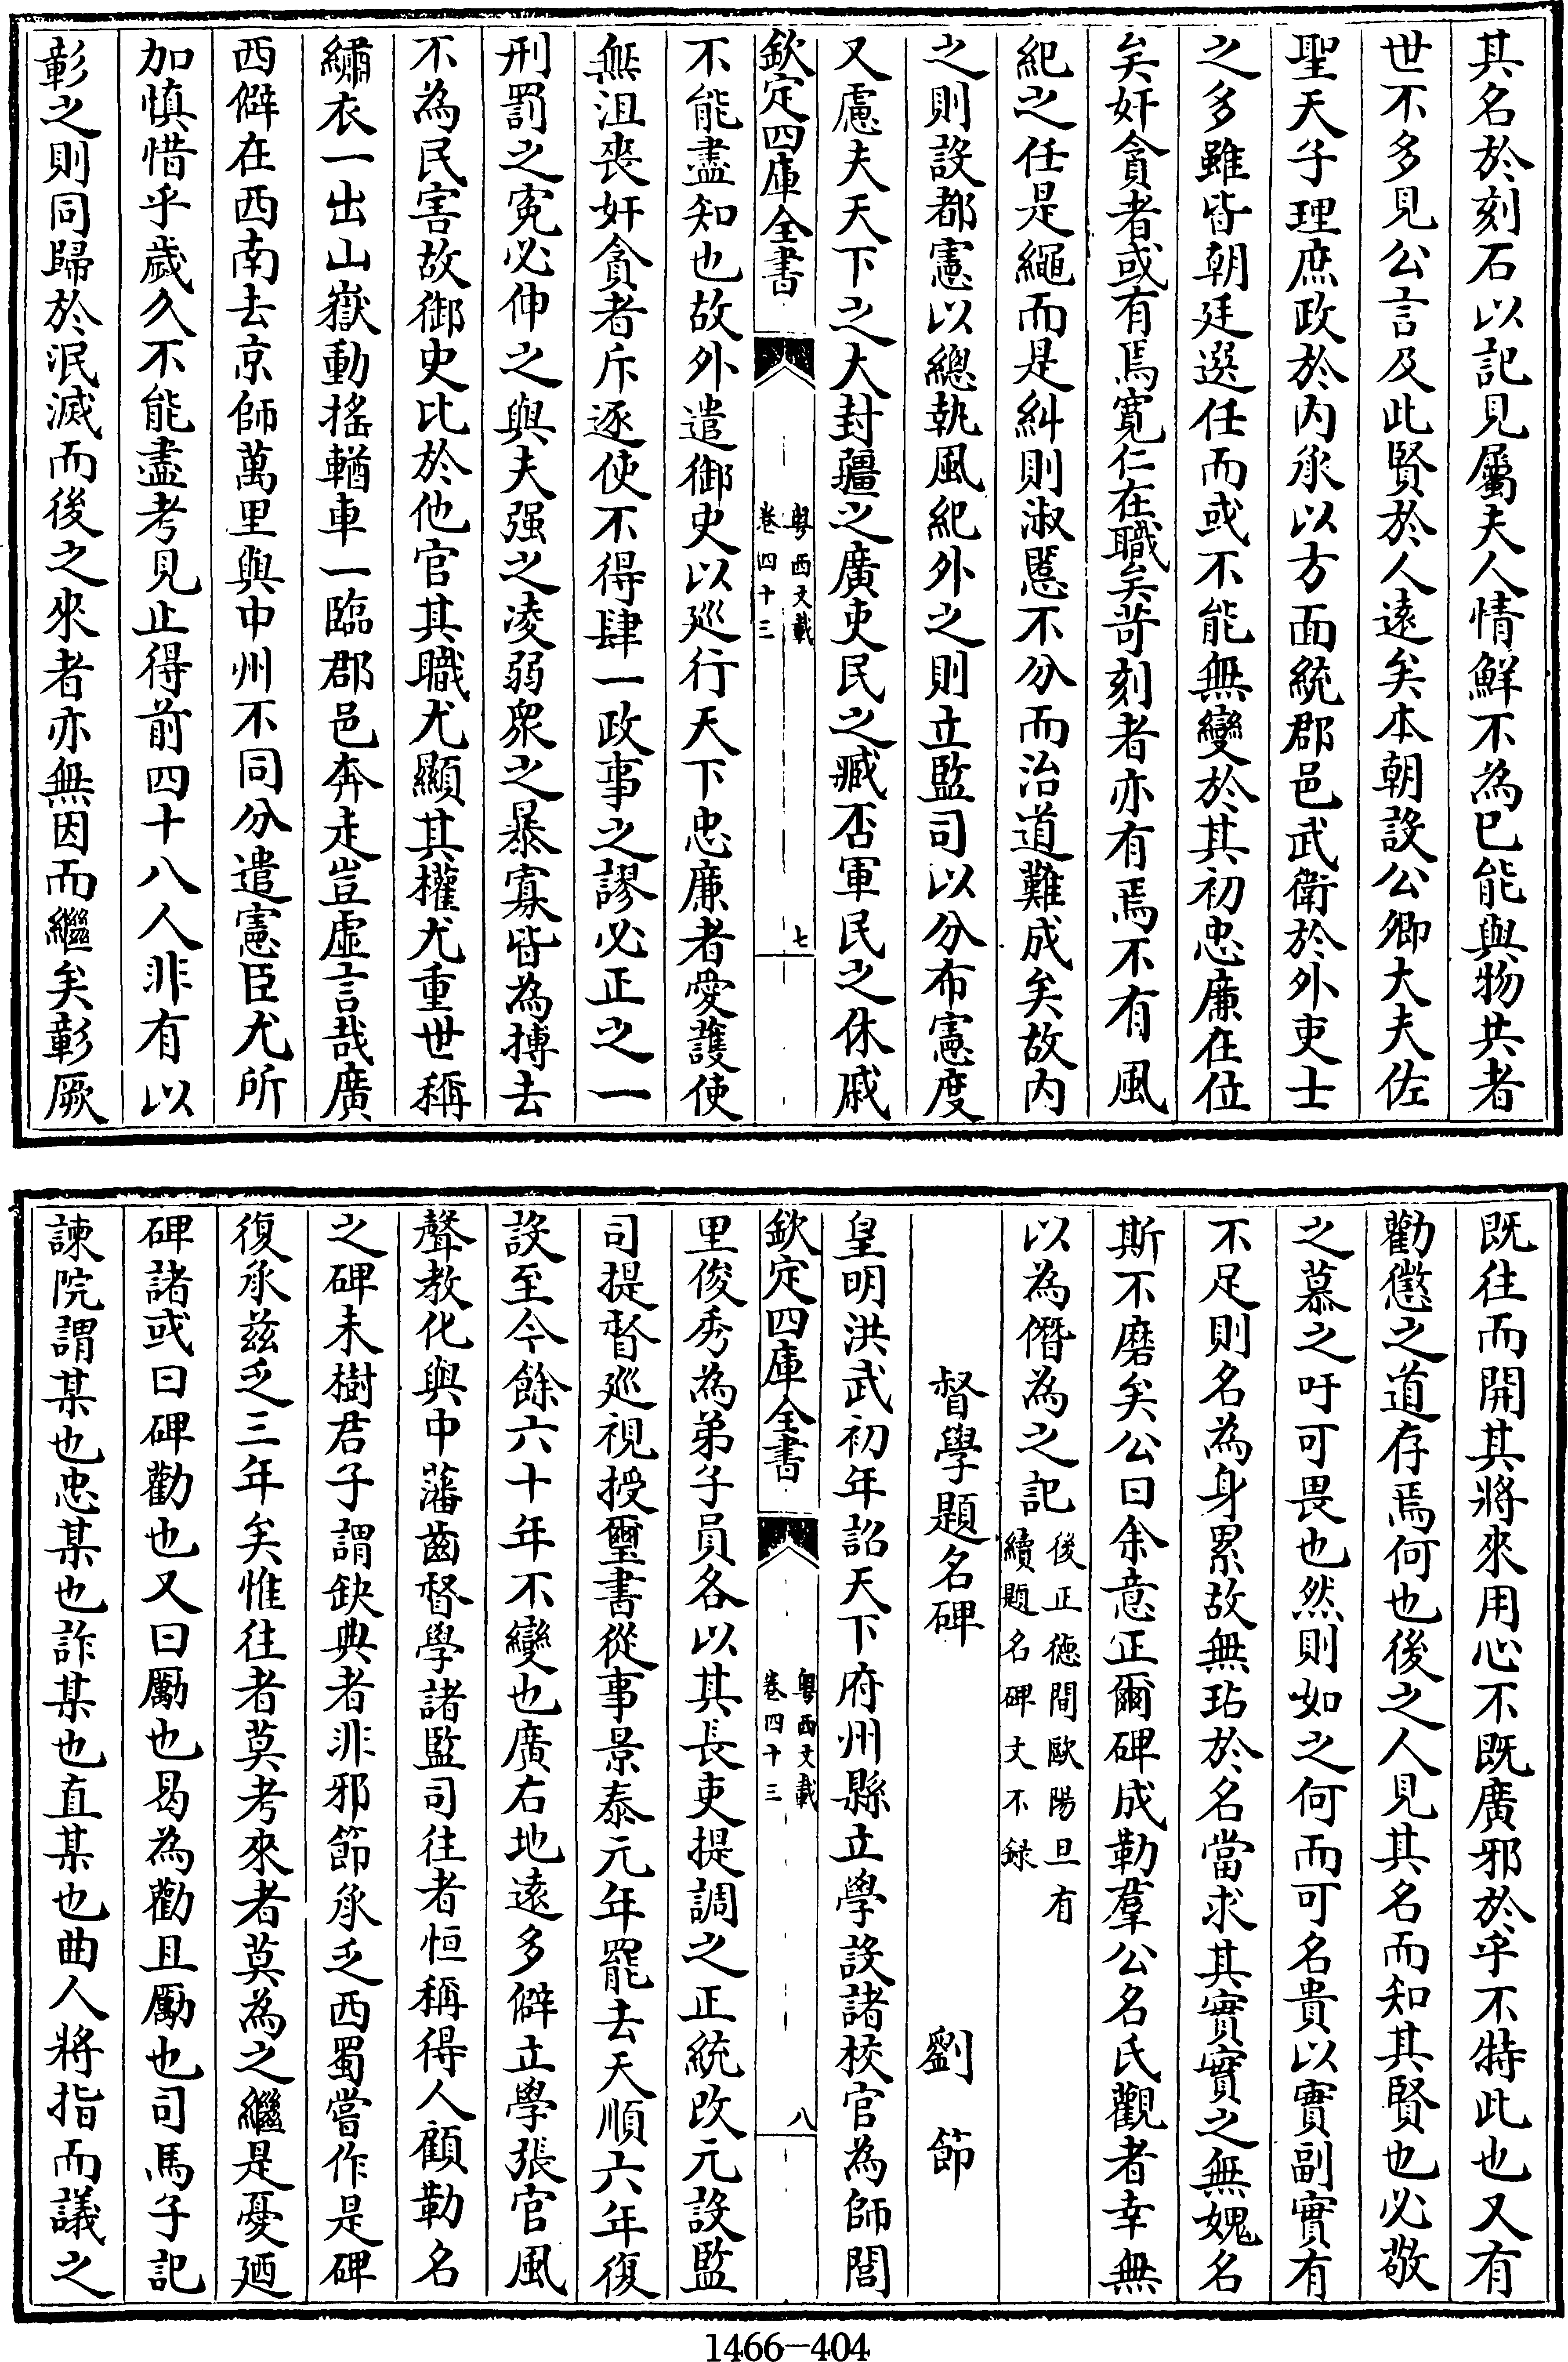 其名於刻石以記見屬夫人情鮮不為已能與物共者
世不多見公言及此賢於人遠矣本朝設公卿大夫佐
聖天子理庶政於内承以方面統郡邑武衛於外吏士
之多雖皆朝廷選任而或不能無變於其初忠廉在位
矣奸貪者或有焉寛仁在職矣苛刻者亦有焉不有風
紀之任是繩而是糾則淑慝不分而治道難成矣故内
之則設都憲以總執風紀外之則立監司以分布憲度
又慮夫天下之大封疆之廣吏民之臧否軍民之休戚
欽定四庫全書
粤西文載
卷四十三
七
不能盡知也故外遣御史以廵行天下忠廉者愛護使
無沮喪奸貪者斥逐使不得肆一政事之謬必正之一
刑罰之寃必伸之與夫强之凌弱衆之暴寡皆為摶去
不為民害故御史比於他官其職尤顯其權尤重世稱
繡衣一出山嶽動揺輶車一臨郡邑奔走豈虚言哉廣
西僻在西南去京師萬里與中州不同分遣憲臣尤所
加慎惜乎歲久不能盡考見止得前四十八人非有以
彰之則同歸於泯滅而後之來者亦無因而繼矣彰厥
既往而開其將來用心不既廣邪於乎不特此也又有
勸懲之道存焉何也後之人見其名而知其賢也必敬
之慕之吁可畏也然則如之何而可名貴以實副實有
不足則名為身累故無玷於名當求其實實之無媿名
斯不磨矣公曰余意正爾碑成勒羣公名氏觀者幸無
以為僭為之記
後正德間歐陽旦有
續題名碑文不録
督學題名碑 劉節
皇明洪武初年詔天下府州縣立學設諸校官為師閭
欽定四庫全書
粤西文載
卷四十三
八
里俊秀為弟子員各以其長吏提調之正統改元設監
司提督廵視授璽書從事景泰元年罷去天順六年復
設至今餘六十年不變也廣右地遠多僻立學張官風
聲教化與中藩齒督學諸監司往者恒稱得人顧勒名
之碑未樹君子謂缺典者非邪節承乏西蜀嘗作是碑
復承兹乏三年矣惟往者莫考來者莫為之繼是憂廼
碑諸或曰碑勸也又曰勵也曷為勸且勵也司馬子記
諫院謂某也忠某也詐某也直某也曲人將指而議之
1466-404